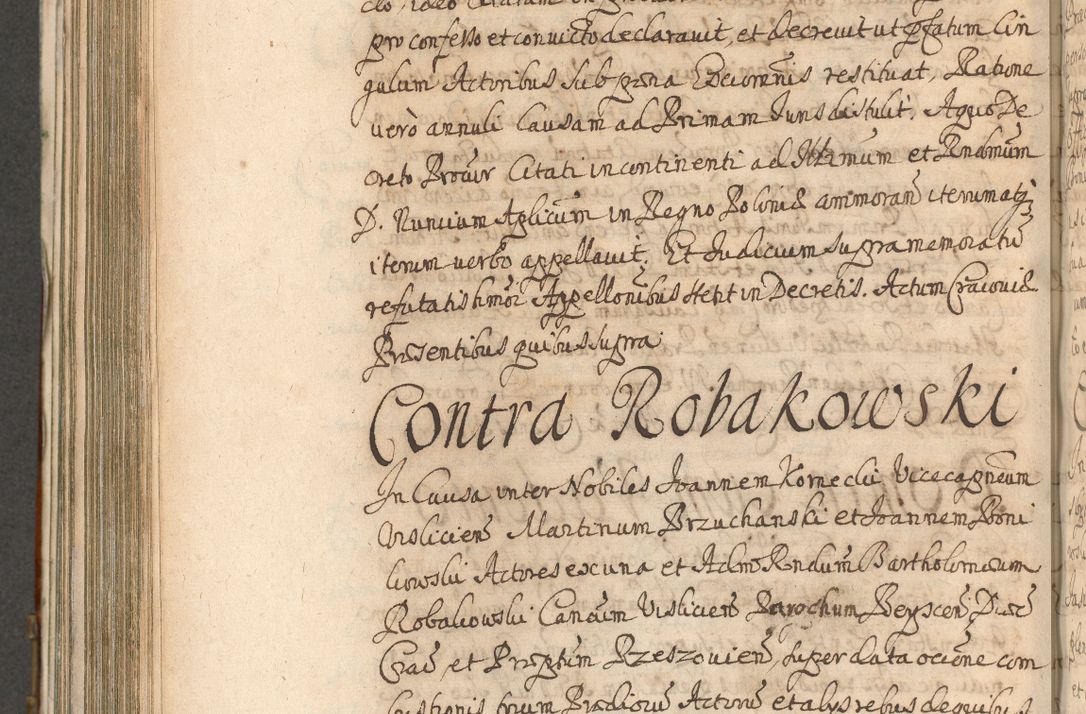 pro confesso et convicto declaravit, et decrevit ut pfatum Cin
gulum Actoribus sub poena Excõmnis restituat, Ratione
vero annuli Causam ad Primam Juris distulit. A quo De
creto Provir Citati in continenti ad Illmum et Rndmum
D. Nuncium Aplicum in Regno Poloniæ ammoran iterum atq
iterum verbo appellavit. Et Judicium supra memoratu
refutatis hmoi Appellonibus stetit in Decretis. Actum Cracoviæ
Præsentibus quibus supra
Contra Robakowski
In Causa inter Nobiles Joannem Kornecki Vicecapneum
Visliciens Martinum Brzuchanski et Joannem Poni
kowski Actores ex una et Adm Rndum Bartholomæum
Robakowski Canoum Visliciens Parochum Beyscen Diæc
Crac et Præptum Rzeszovien, super data occione com
bustionis trium Prædioru Actoru et alys rebus de quibus